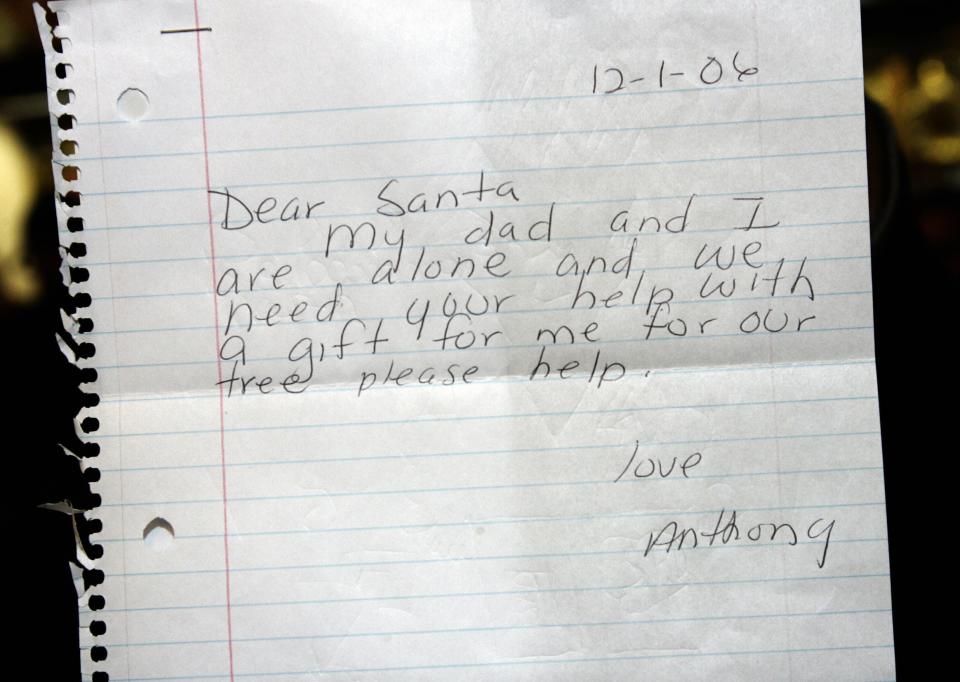 12-1-06
Dear Santa
my dad and I
are alone and we
need your help with
a gift for me for our
tree please help.
love
Anthony